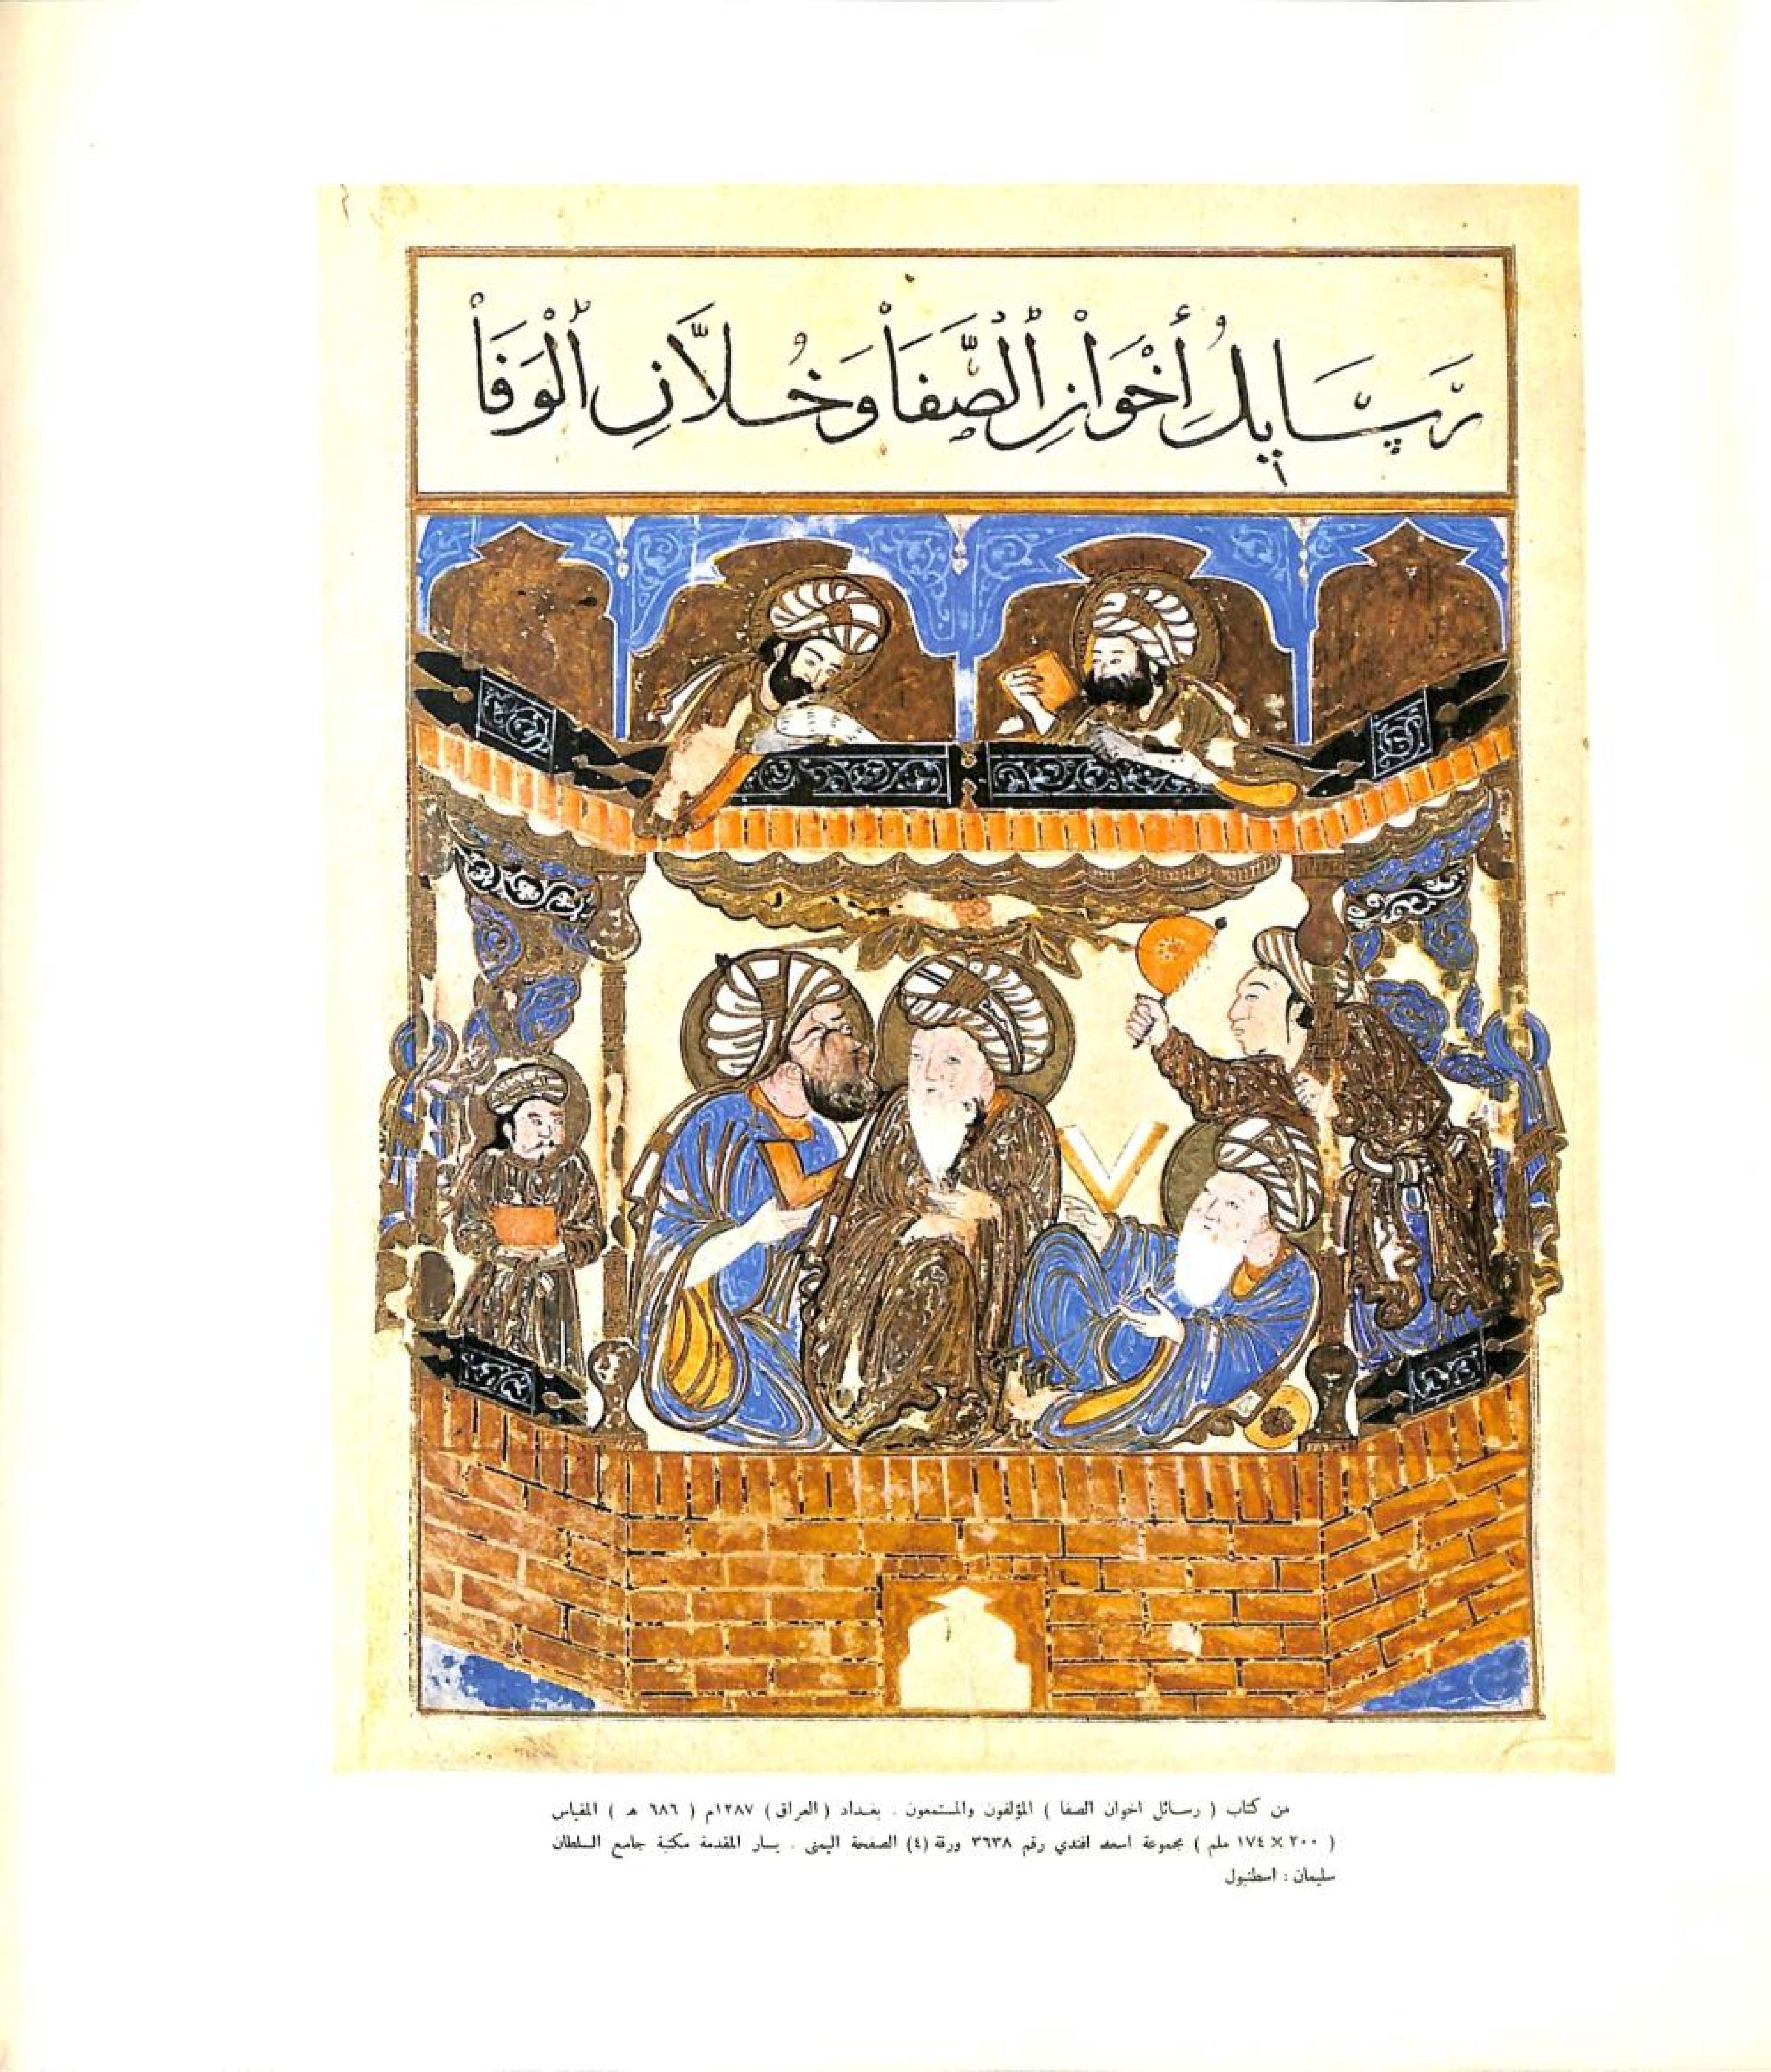 رَسَايِلُ أُخْوَانِ ٱلصَّفَاْ وَخُلاَّنِ ٱلْوَفَاْ
من كتاب ( رسائل اخوان الصفا ) المؤلفون والمستمعون . بغداد ( العراق ) ١٢٨٧م ( ٦٨٦ هـ ) المقياس
( ٢٠٠ × ١٧٤ ملم ) مجموعة اسعد افندي رقم ٣٦٣٨ ورقة (٤) الصفحة اليمنى . يسار المقدمة مكتبة جامع السلطان
سليمان : اسطنبول